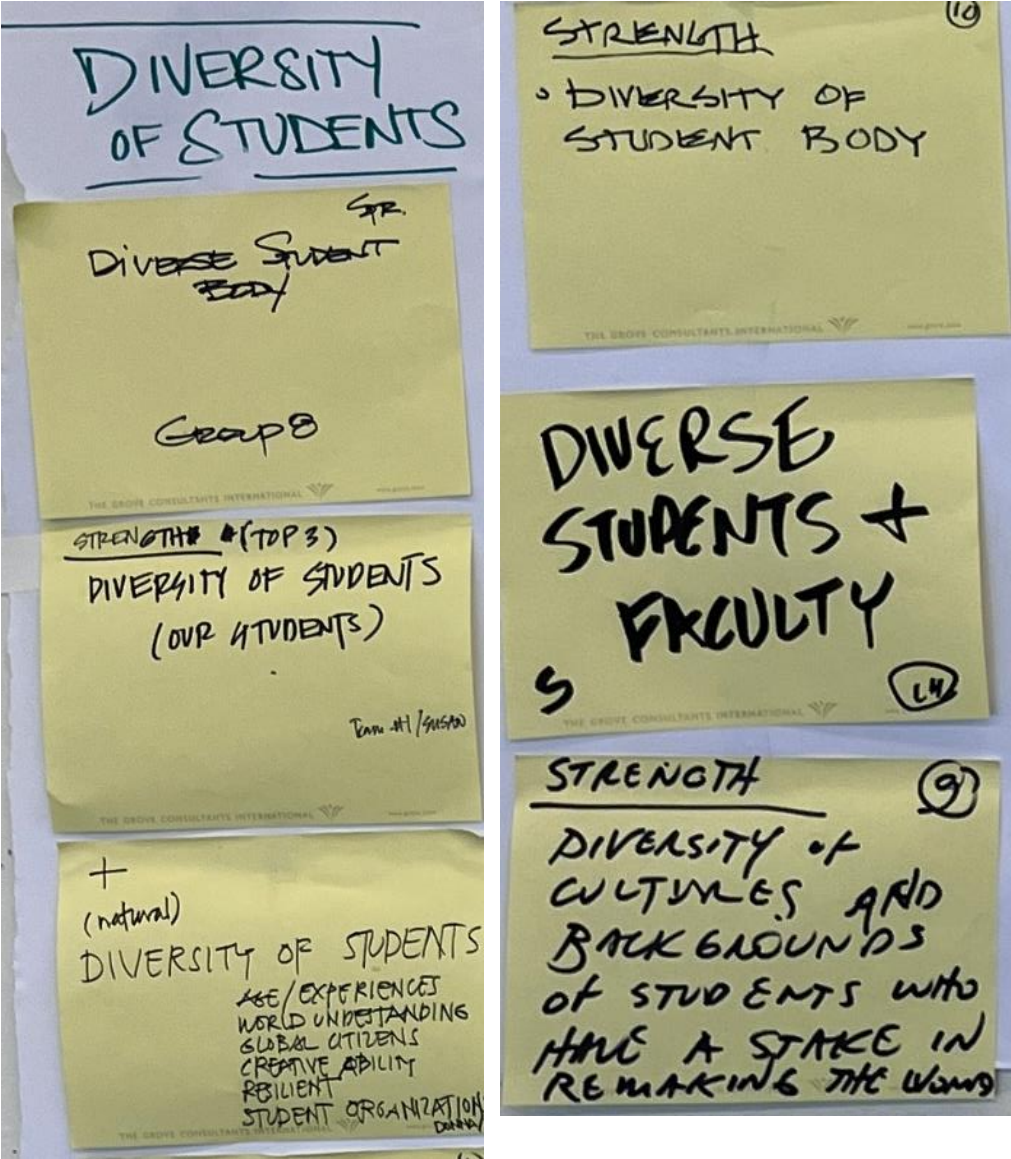 DIVERSITY
OF STUDENTS
STR.
DIVERSE STUDENT
BODY
Group 8
THE GROVE CONSULTANTS INTERNATIONAL
STRENGTH #(TOP 3)
DIVERSITY OF STUDENTS
(OUR STUDENTS)
Team #1/SUSAN
THE GROVE CONSULTANTS INTERNATIONAL
+
(natural)
DIVERSITY OF STUDENTS
AGE/EXPERIENCES
WORLD UNDESTANDING
GLOBAL CITIZENS
CREATIVE ABILITY
RESILIENT
STUDENT ORGANIZATION
DONNA/
THE GROVE CONSULTANTS INTERNATIONAL
10
STRENGTH
• DIVERSITY OF
STUDENT BODY
THE GROVE CONSULTANTS INTERNATIONAL
DIVERSE
STUDENTS +
FACULTY
S
THE GROVE CONSULTANTS INTERNATIONAL
STRENGTH
9
DIVERSITY of
CULTURES AND
BACKGROUNDS
of STUDENTS WHO
HAVE A STAKE IN
REMAKING THE WORLD